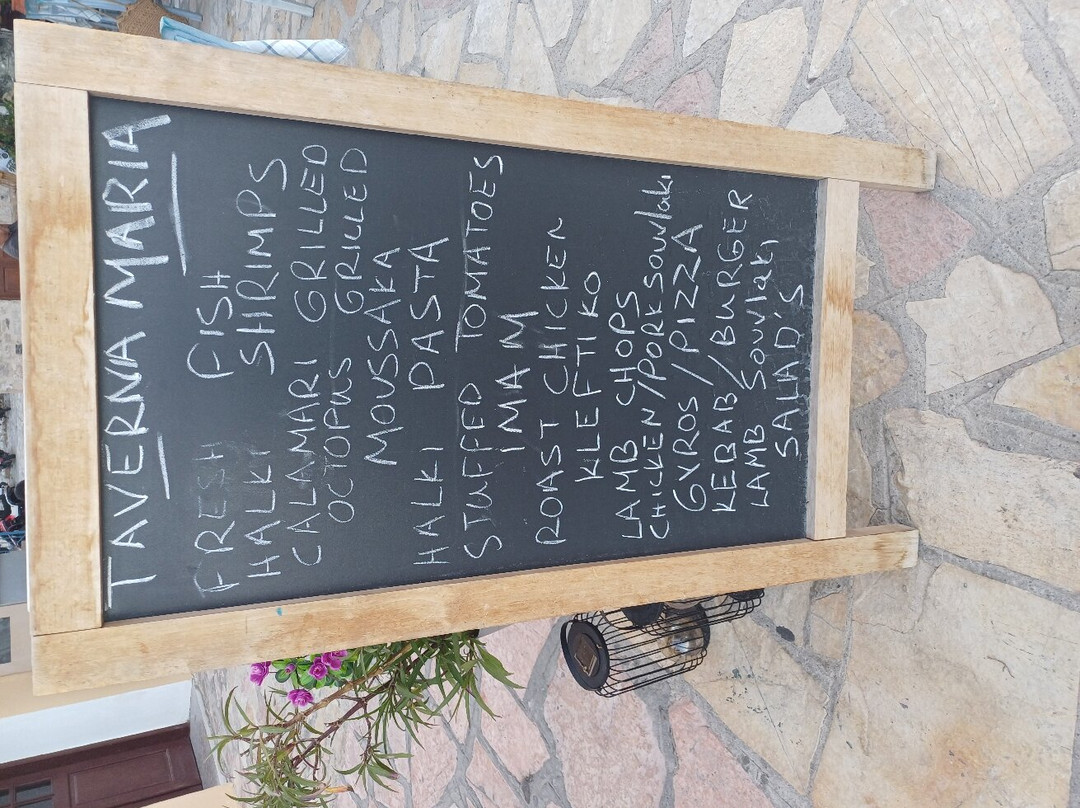 TAVERNA MARIA
FRESH FISH
HALKI SHRIMPS
CALAMARI GRILLED
OCTOPUS GRILLED
MOUSSAKA
HALKI PASTA
STUFFED TOMATOES
IMAM
ROAST CHICKEN
KLEFTIKO
LAMB CHOPS
CHICKEN/PORK SOUVlaki
GYROS/PIZZA
KEBAB/BURGER
LAMB SOUVlaki
SALAD'S